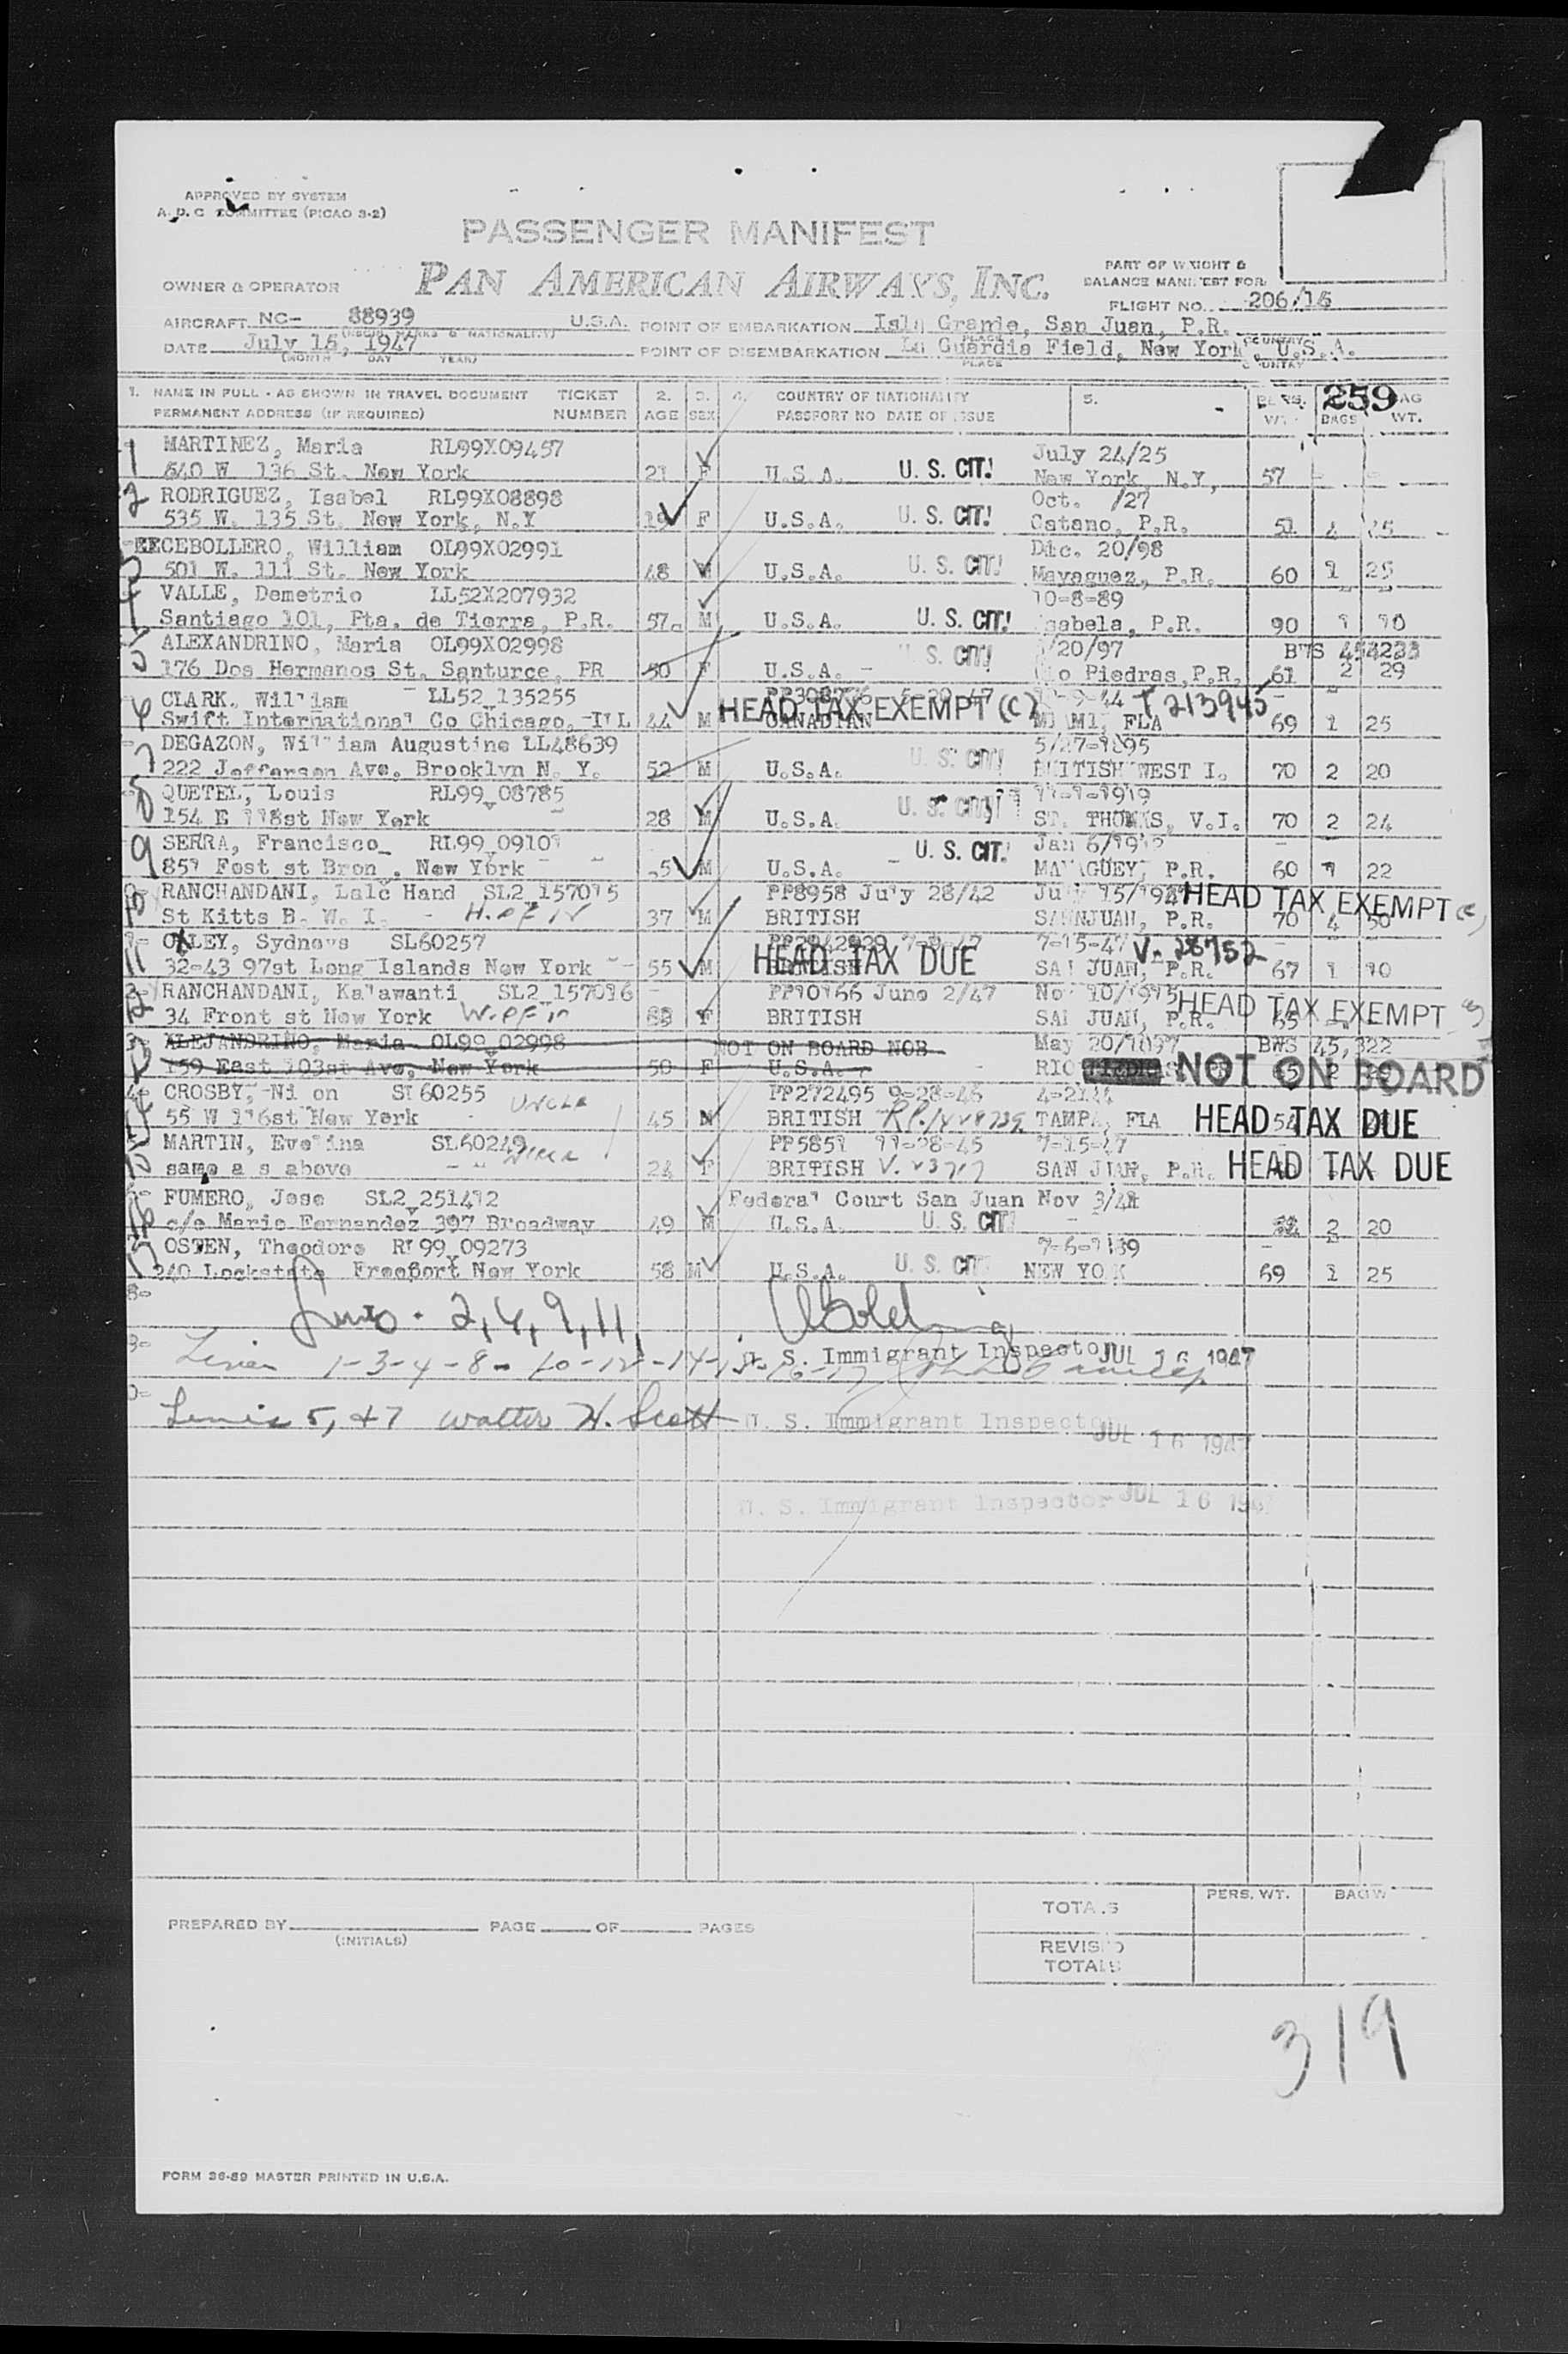 APPROVED BY SYSTEM
A. D. C COMMITTEE (PICAO 3-2)
PASSENGER MANIFEST
OWNER & OPERATOR PAN AMERICAN AIRWAYS, INC.
PART OF WEIGHT &
BALANCE MANIFEST FOR
FLIGHT NO. 206/16
AIRCRAFT NC- 88939 U.S.A. POINT OF EMBARKATION Isla Grande, San Juan, P.R.
DATE July 16, 1947 POINT OF DISEMBARKATION La Guardia Field, New York U.S.A.
(MONTH DAY YEAR) PLACE
1. NAME IN FULL - AS SHOWN IN TRAVEL DOCUMENT TICKET 2. 3. 4. COUNTRY OF NATIONALITY 5. PERS. 259 BAG
PERMANENT ADDRESS (IF REQUIRED) NUMBER AGE SEX PASSPORT NO DATE OF ISSUE WT. BAGS WT.
1 MARTINEZ, Maria RL99X09457 July 24/25
640 W 136 St. New York 21 F U.S.A. U. S. CIT. New York, N.Y, 57
2 RODRIGUEZ, Isabel RL99X08898 Oct. /27
535 W. 135 St. New York, N.Y 19 F U.S.A. U. S. CIT. Catano, P.R. 51
3 CEBOLLERO, William OL99X02991 Dic. 20/98
501 W. 111 St. New York 48 M U.S.A. U. S. CIT. Mayaguez, P.R. 60 1 25
4 VALLE, Demetrio LL52X207932 10-8-89
Santiago 101, Pta. de Tierra, P.R. 57 M U.S.A. U. S. CIT. Isabela, P.R. 90 1 10
5 ALEXANDRINO, Maria OL99X02998 /20/97 BWS 454233
176 Dos Hermanos St. Santurce, PR 50 F U.S.A. U. S. CIT Rio Piedras, P.R. 61 2 29
6 CLARK, William LL52 135255 T 213945
Swift International Co Chicago, ILL 44 M HEAD TAX EXEMPT (C) CANADIAN MIAMI, FLA 69 1 25
7 DEGAZON, William Augustine LL48639 5/27-1895
222 Jefferson Ave. Brooklyn N. Y. 52 M U.S.A. U. S. CIT BRITISH WEST I. 70 2 20
8 QUETEL, Louis RL99 08785 11-1-1919
154 E 118st New York 28 M U.S.A. U. S. CIT ST. THOMAS, V.I. 70 2 24
9 SERRA, Francisco RL99 09101 Jan 6/
851 Fost st Bron . New York M U.S.A. U. S. CIT. MAYAGUEY, P.R. 60 1 22
10 RANCHANDANI, Lalc Hand SL2 157015 PP8958 July 28/42 HEAD TAX EXEMPT
St Kitts B. W. I. 37 M BRITISH SANNJUAN, P.R. 70 4 50
11 OXLEY, Sydneys SL60257 7-15-47 V- 28952
32-43 97st Long Islands New York 55 M HEAD TAX DUE BRITISH SAN JUAN, P.R. 67 1 10
12 RANCHANDANI, Kalawanti SL2 157016 PP10166 June 2/47 Nov 10/1915 HEAD TAX EXEMPT
34 Front st New York F BRITISH SAN JUAN, P.R.
ALEJANDRINO, Maria OL99 02998 NOT ON BOARD NOB May 20/1897
159 East 103st Ave, New York 50 F U.S.A. RIO PIEDRAS NOT ON BOARD
14 CROSBY, Ni on SL60255 UNCLE PP272495 9-28-46
55 W 116st New York 45 BRITISH TAMPA, FLA HEAD TAX DUE
15 MARTIN, Evelina SL60249 Niece PP5851 11-28-45 7-15-47
same a s above 24 F BRITISH SAN JUAN, P.R. HEAD TAX DUE
16 FUMERO, Jose SL2 251412 Federal Court San Juan Nov 3/
c/o Mario Fernandez 397 Broadway 49 M U.S.A. U. S. CIT 2 20
17 OSTEN, Theodore RL99 09273
240 Lockstate Freeport New York 58 M U.S.A. U. S. CIT NEW YORK 69 1 25
2, 6, 9, 11,
U. S. Immigrant Inspector JUL 16 1947
1-3-4-8-10-12-14-15-16-17
5, & 7 Walter H. Scott U. S. Immigrant Inspector JUL 16 1947
U. S. Immigrant Inspector JUL 16 194
TOTALS PERS. WT. BAG W
PREPARED BY PAGE OF PAGES
(INITIALS)
REVISED
TOTALS
319
FORM 36-89 MASTER PRINTED IN U.S.A.